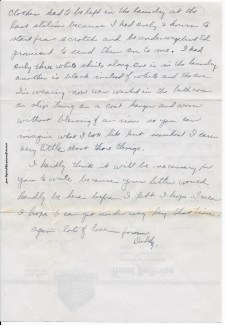 clothes had to be left in the laundry at the
base station because I had only 2 hours to
start from scratch and the undersergeant
promised to send them on to me. I had
only three white shirts along, one is in the laundry
another is black instead of white and the one
I'm wearing now was washed in the bathroom
on ship hung on a coat hanger and worn
without blessing of an iron so you can
imagine what I look like but somehow I care
very little about those things.
I hardly think it will be necessary for
you to write because your letter would
hardly be here before I left I hope. I mean
I hope I can get under way by that time.
again lots of love forever